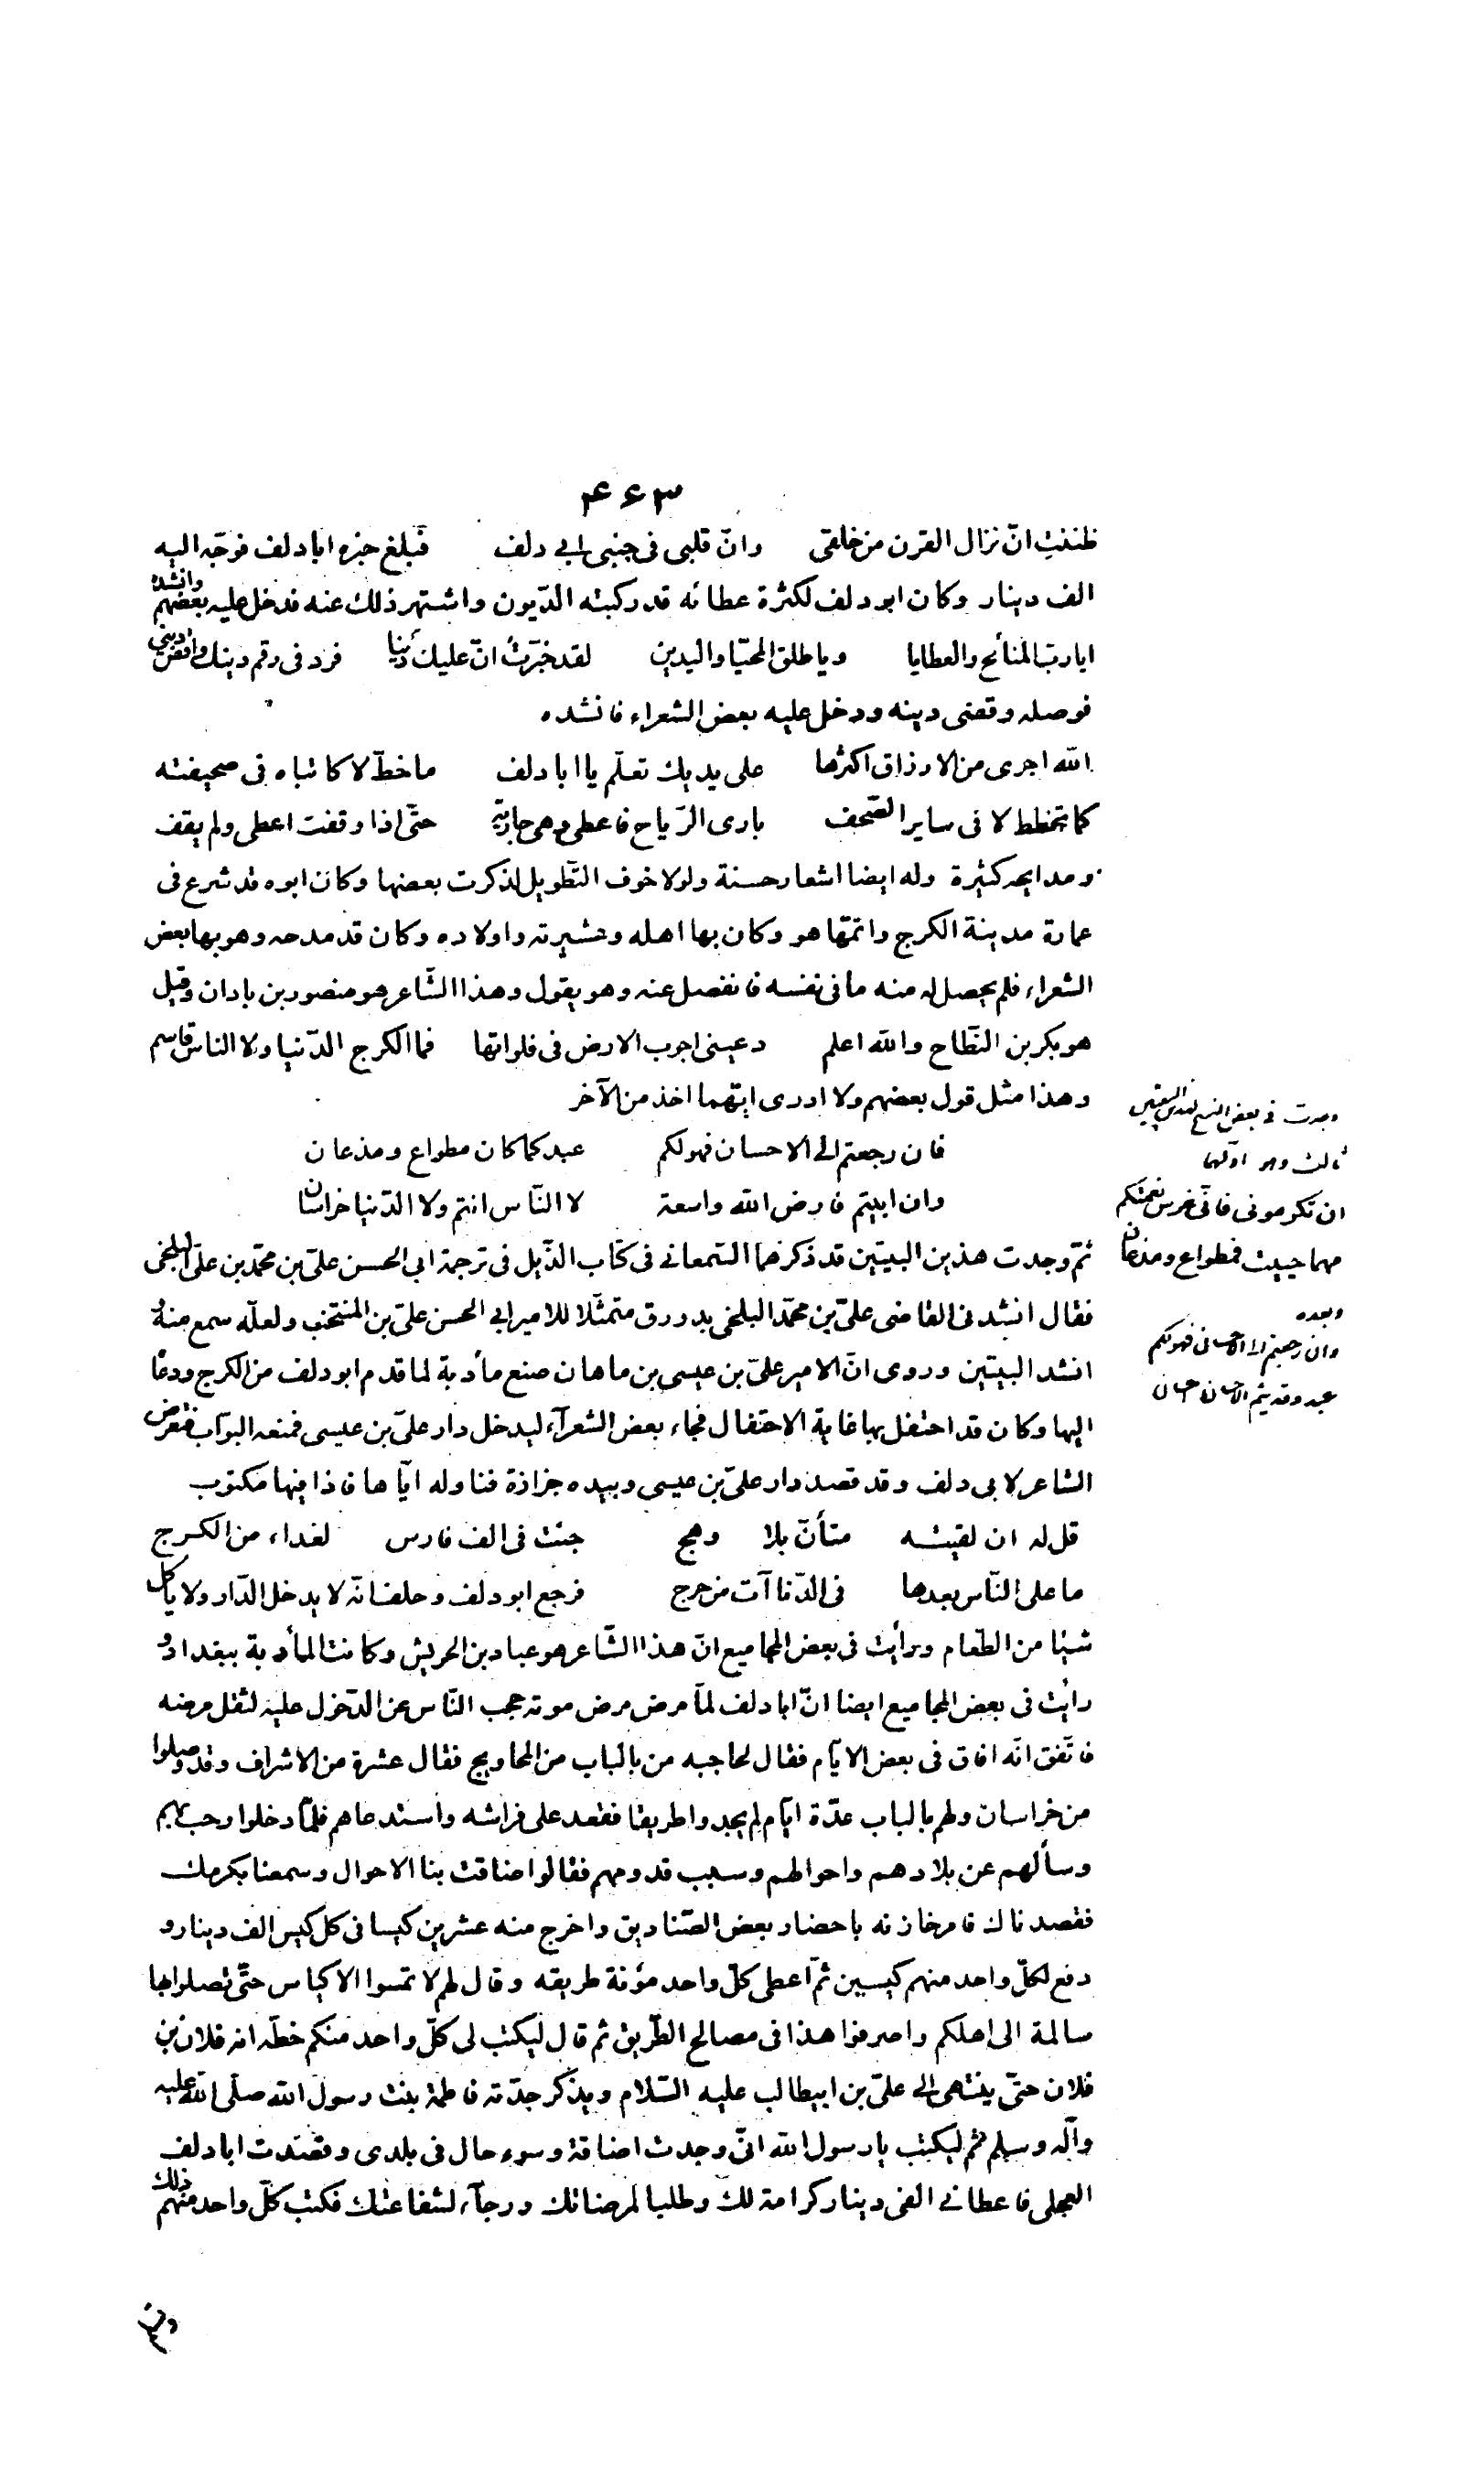 ۴۶۳
ظننت انّ نزال القرن من خلقى وانّ قلبى فى جنبى ابى دلف فبلغ خبره ابادلف فوجّه اليه
الف دينار وكان ابو دلف لكثرة عطائه قد ركبته الدّيون واشتهر ذلك عنه فدخل عليه بعضهم وانشده
ايا ربّ المنائح والعطايا ويا طلق المحيّا واليدين لقد خبّرت انّ عليك دينا فزد فى رقم دينك واقض دينى
فوصله وقضى دينه ودخل عليه بعض الشعراء فانشده
اللّه اجرى من الارزاق اكثرها على يديك تعلّم يا ابا دلف ما خطّ لا كاتباه فى صحيفته
كما تخطط لا فى ساير الصّحف بارى الرّياح فاعطى وهى جارية حتّى اذا وقفت اعطى ولم يقف
ومدايحه كثيرة وله ايضا اشعار حسنة ولولا خوف التّطويل لذكرت بعضها وكان ابوه قد شرع فى
عمارة مدينة الكرج واتمّها هو وكان بها اهله وعشيرته واولاده وكان قد مدحه وهو بها بعض
الشعراء فلم يحصل له منه ما فى نفسه فانفصل عنه وهو يقول وهذا الشّاعر هو منصور بن بادان وقيل
هو بكر بن النّطاح واللّه اعلم دعينى اجوب الارض فى فلواتها فما الكرج الدّنيا ولا الناس قاسم
وهذا مثل قول بعضهم ولا ادرى ايّهما اخذ من الآخر
فان رجعتم الى الاحسان فهو لكم عبد كما كان مطواع ومذعان
وان ابيتم فارض اللّه واسعة لا النّاس انتم ولا الدّنيا خراسان
ثمّ وجدت هذين البيتين قد ذكرهما السّمعانى فى كتاب الذّيل فى ترجمة ابى الحسن علىّ بن محمّد بن علىّ البلخى
فقال انشدنى القاضى علىّ بن محمّد البلخى بدورق متمثّلا للامير ابى الحسن علىّ بن المنتخب ولعلّه سمع منه
انشد البيتين وروى انّ الامير علىّ بن عيسى بن ماهان صنع مأدبة لما قدم ابو دلف من الكرج ودعا
اليها وكان قد احتفل بها غاية الاحتفال فجاء بعض الشعرآء ليدخل دار علىّ بن عيسى فمنعه البوّاب فتعرض
الشاعر لابى دلف وقد قصد دار علىّ بن عيسى وبيده جزازة فناوله ايّاها فاذا فيها مكتوب
قل له ان لقيته متأنّ بلا وهج جئت فى الف فارس لغداء من الكرج
ما على النّاس بعدها فى الدّنا آت من حرج فرجع ابو دلف وحلف انّه لا يدخل الدّار ولا يأكل
شيئا من الطّعام ورأيت فى بعض المجاميع انّ هذا الشّاعر هو عباد بن الحريش وكانت المأدبة ببغداد و
رأيت فى بعض المجاميع ايضا انّ ابا دلف لمّا مرض مرض موته حجب النّاس عن الدّخول عليه لثقل مرضه
فاتّفق انّه افاق فى بعض الايّام فقال لحاجبه من بالباب من المحاويج فقال عشرة من الاشراف وقد وصلوا
من خراسان ولهم بالباب عدّة ايّام لم يجدوا طريقا فقعد على فراشه واستدعاهم فلمّا دخلوا رحب بهم
وسألهم عن بلادهم واحوالهم وسبب قدومهم فقالوا ضاقت بنا الاحوال وسمعنا بكرمك
فقصدناك فامر خازنه باحضار بعض الصّناديق واخرج منه عشرين كيسا فى كل كيس الف دينار و
دفع لكلّ واحد منهم كيسين ثمّ اعطى كلّ واحد مؤنة طريقه وقال لهم لا تمسوا الاكياس حتّى تصلوا بها
سالمة الى اهلكم واصرفوا هذا فى مصالح الطّريق ثم قال ليكتب لى كلّ واحد منكم خطّه انه فلان بن
فلان حتّى ينتهى الى علىّ بن ابيطالب عليه السّلام ويذكر جدّته فاطمة بنت رسول اللّه صلّى اللّه عليه
وآله وسلم ثم ليكتب يا رسول اللّه انّى وجدت اضاقة وسوء حال فى بلدى وقصدت ابا دلف
العجلى فاعطانى الفى دينار كرامة لك وطلبا لمرضاتك ورجآء لشفاعتك فكتب كلّ واحد منهم ذلك
وجدت فى بعض النسخ لهذين البيتين
ثالث وهو اوّلها
ان تكرمونى فانّى غرس نعمتكم
مهما حييت فمطواع ومذعان
وبعده
وان رجعتم الى الاحسان فهو لكم